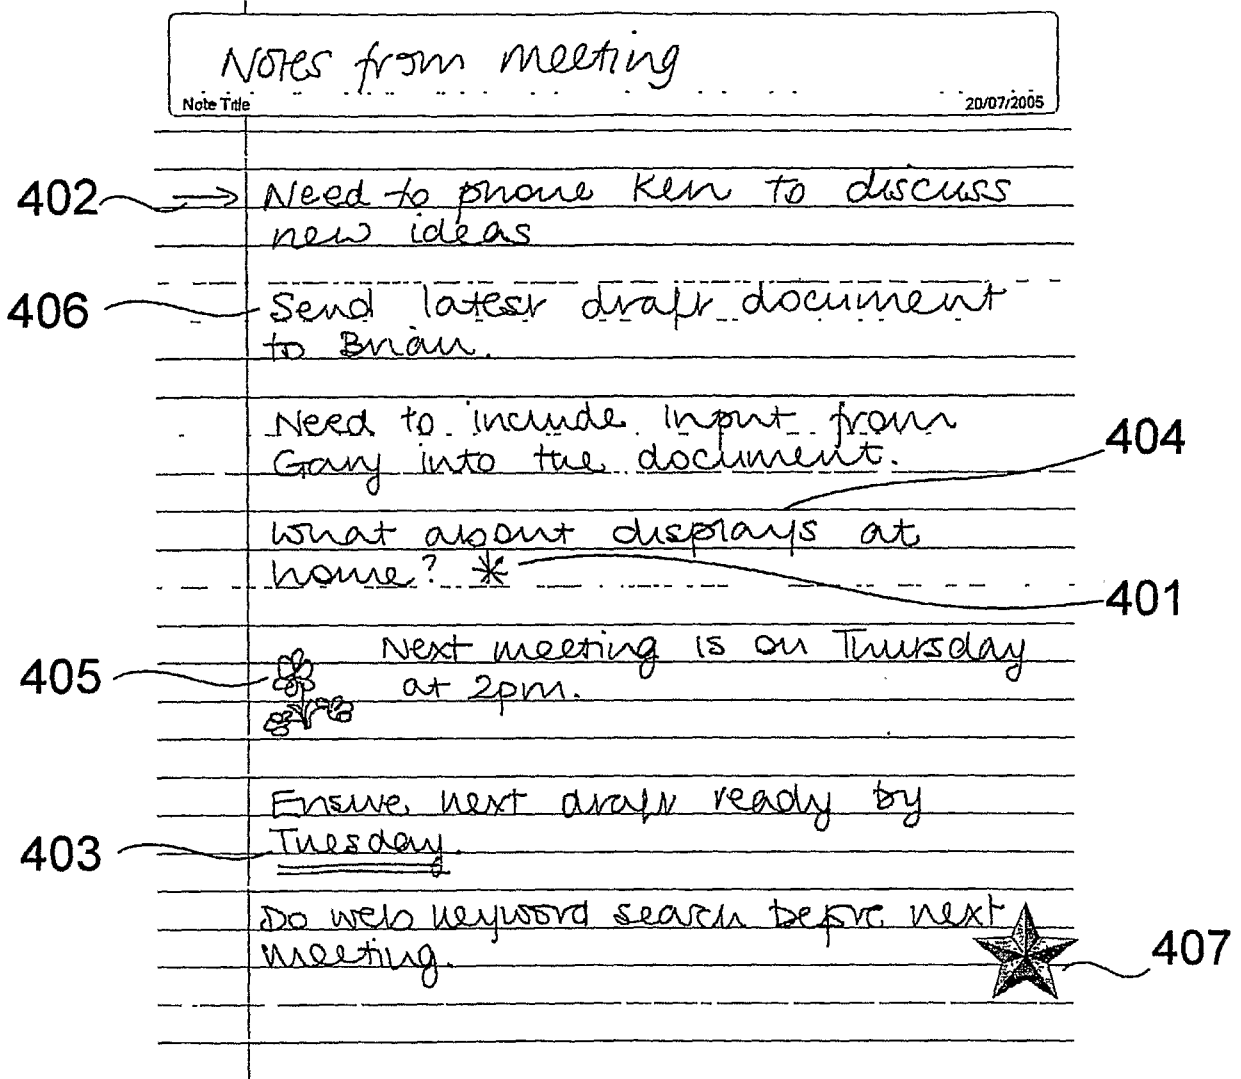 Notes from meeting
Note Title 20/07/2005
402 Need to phone Ken to discuss
new ideas
406 Send latest draft document
to Brian.
Need to include input from
Gary into the document.
404
What about displays at
home? *
401
Next meeting is on Thursday
405 at 2pm.
Ensure next draft ready by
403 Tuesday.
Do web keyword search before next
meeting.
407